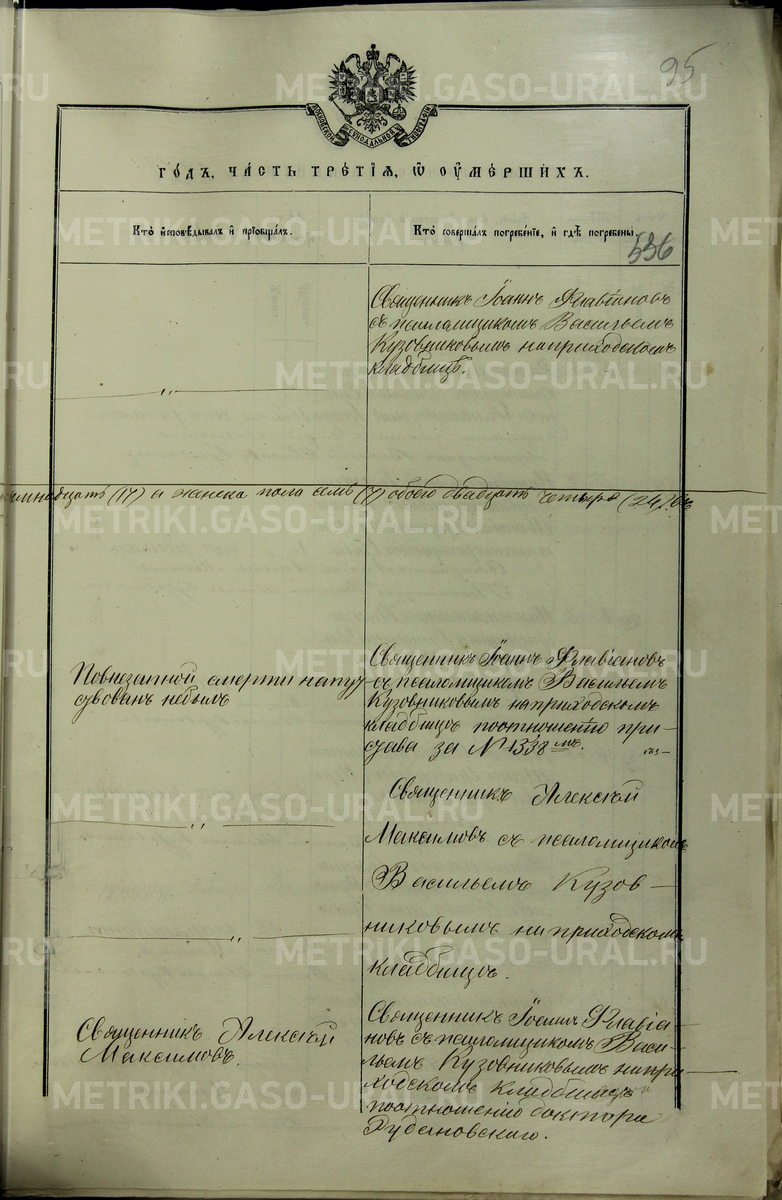 95
МОСКОВСКОЙ СѴНОДАЛЬНОЙ ТИПОГРАФІИ
ГОДЪ, ЧАСТЬ ТРЕТІЯ, Ѿ ОУМЕРШИХЪ.
Кто исповѣдывалъ и пріобщалъ.
Кто совершалъ погребеніе, и гдѣ погребены.
536
Священникъ Іоаннъ Флавіановъ
съ псаломщикомъ Васильемъ
Кузовниковымъ на приходскомъ
кладбищѣ.
〃
мнадцать (17) а женска пола семь (7) обоего двадцать четыре (24)
По внезапной смерти напут
ствованъ небылъ
Священникъ Іоаннъ Флавіановъ
съ псаломщикомъ Васильемъ
Кузовниковымъ на приходскомъ
кладбищѣ поотношенію при-
става за № 1338 мъ.
〃
Священникъ Алексѣй
Максимовъ съ псаломщикомъ
Васильемъ Кузов-
никовымъ на приходскомъ
〃
кладбищѣ.
Священникъ Алексѣй
Максимовъ.
Священникъ Іоаннъ Флавіа-
новъ съ псаломщикомъ Васи-
льемъ Кузовниковымъ на при-
ходскомъ кладбищѣ
поотношенію доктора
Рудановскаго.
METRIKI.GASO-URAL.RU